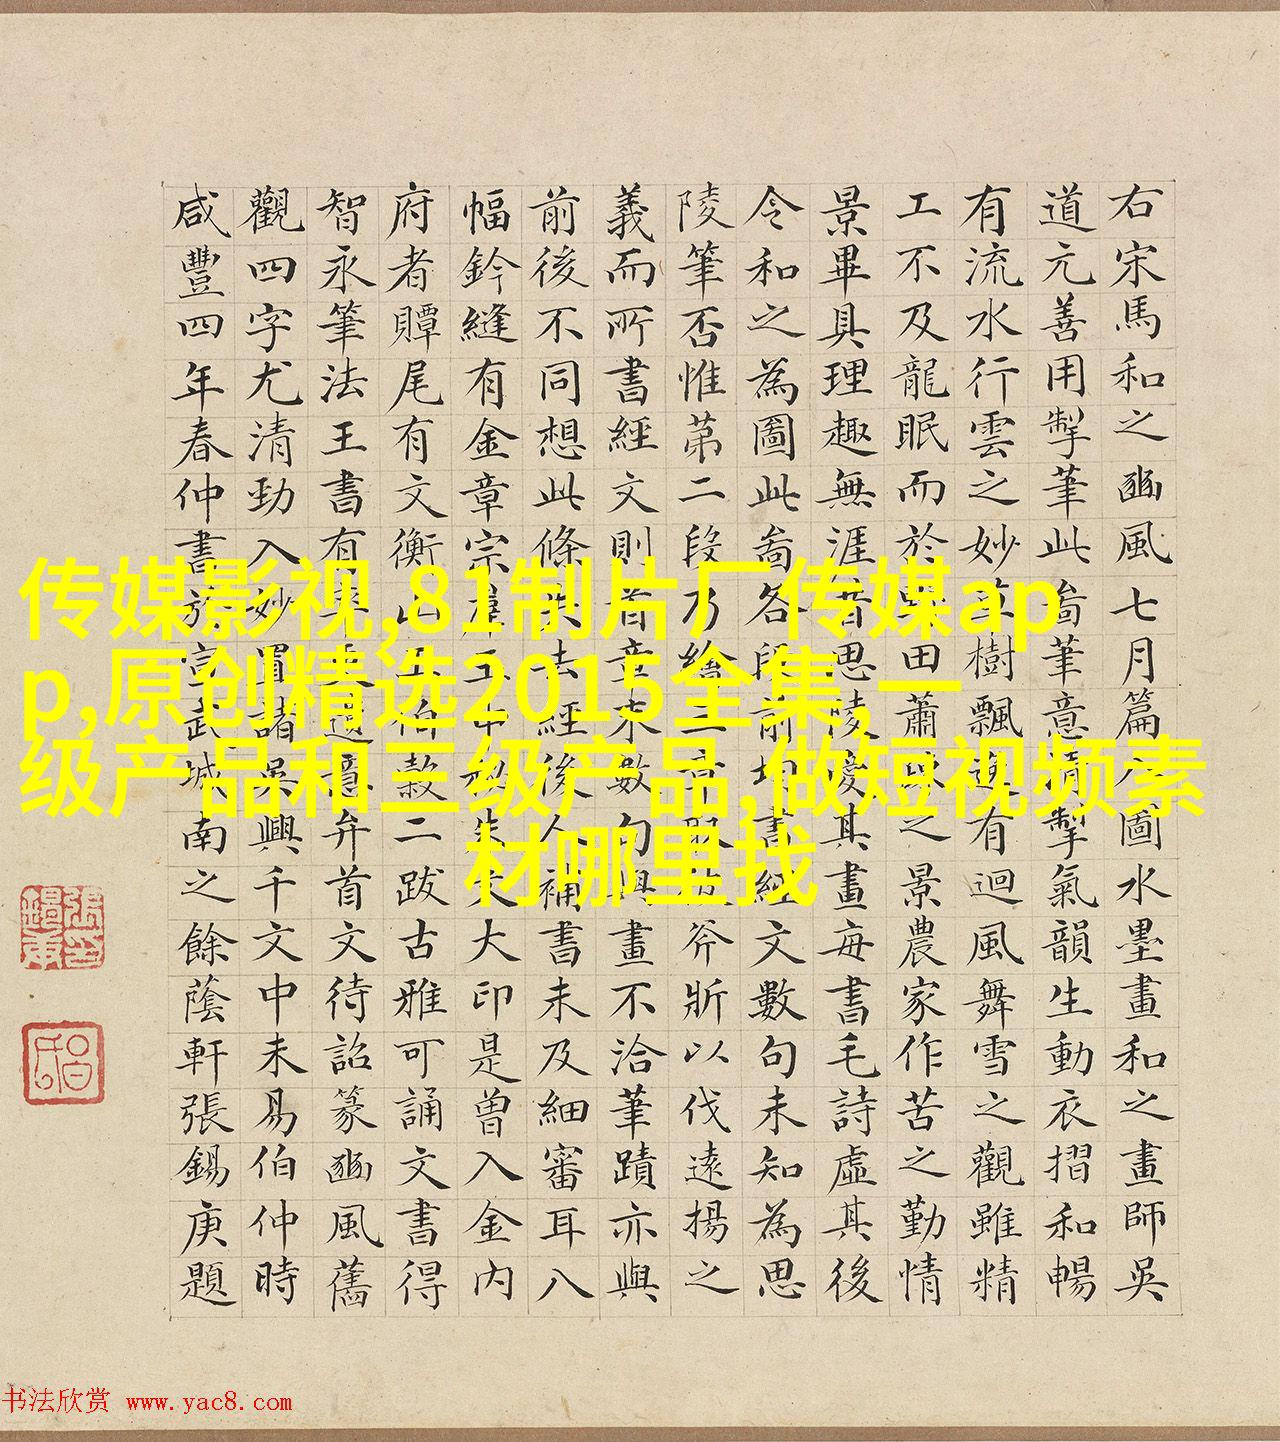 右宋馬和之豳風七月篇八圖水墨畫和之畫師吳
道元善用掣筆此啚筆意清掣氣韻生動衣摺和暢
有流水行雲之妙草樹飄有迴風舞雪之觀雖精
工不及龍眠而於田蕭之景農家作苦之勤情
景畢具理趣無涯昔思陵愛其畫每書毛詩虛其後
令和之為圖此啚各段前均書經文數句未知為思
陵筆否惟苐二段乃繪三章取彼斧斨以伐遠揚之
義而所書經文則首章末數句與畫不洽筆蹟亦與
前後不同想此條失去經後人補書未及細審耳八
幅鈐縫有金章宗羣玉中秘朱文大印是曾入金內
府者贉尾有文衡山王伯穀二跋古雅可誦文書得
智永筆法王書有率更遺意弁首文待詔篆豳風舊
觀四字尤清勁入妙置諸吳興千文中未易伯仲時
咸豐四年春仲書於宣武城南之餘蔭軒張錫庚題
传媒影视,81制片厂传媒ap
p,原创精选2015全集,一
级产品和三级产品,做短视频素
材哪里找
书法欣赏 www.yac8.com